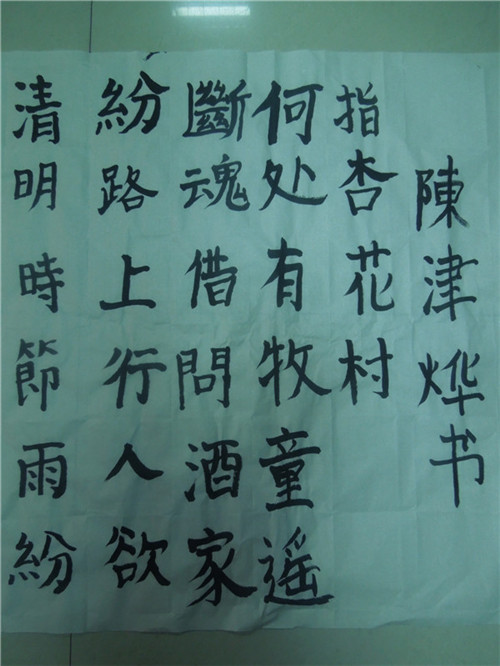 清明時節雨紛
紛路上行人欲
斷魂借問酒家
何处有牧童遥
指杏花村
陳津烨书